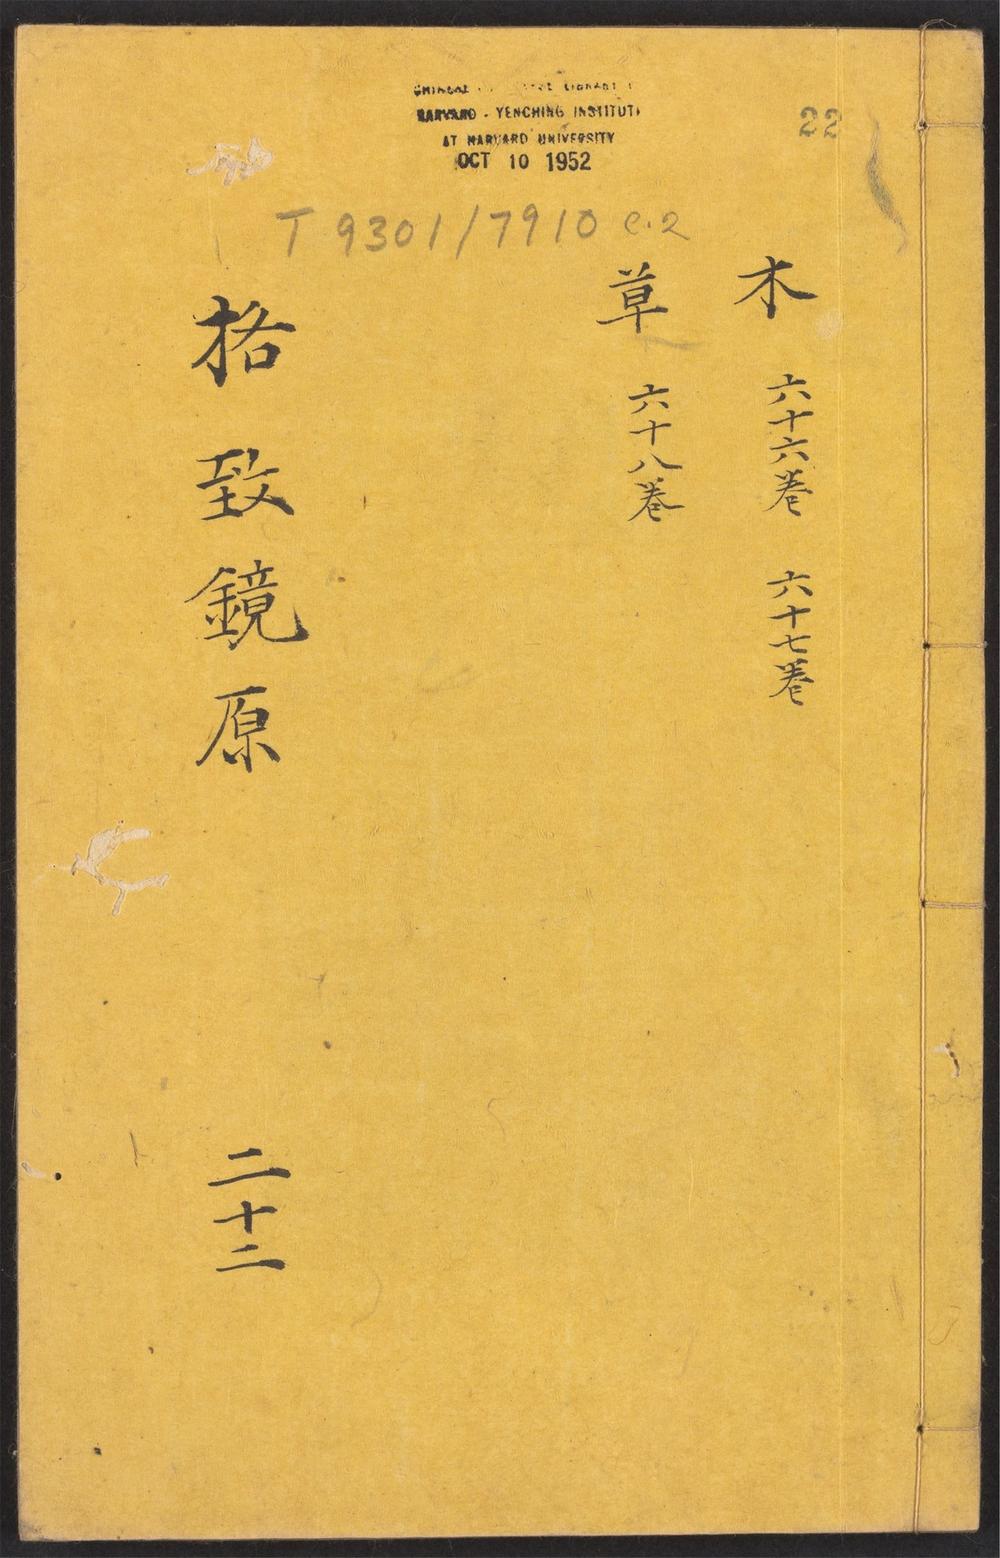 HARVARD-YENCHING INSTITUTE
AT HARVARD UNIVERSITY
OCT 10 1952
22
T 9301/7910 c.2
木 六十六卷 六十七卷
草 六十八卷
格致鏡原 二十二